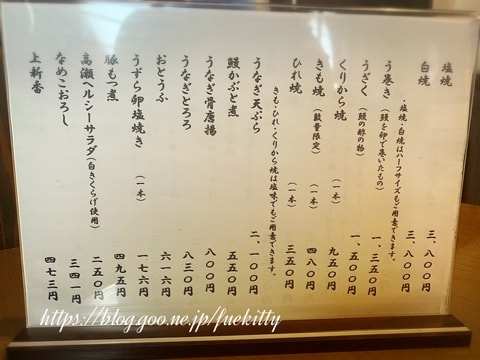 塩焼 三、八〇〇円
白焼 三、八〇〇円
・塩焼・白焼はハーフサイズもご用意できます。
う巻き(鰻を卵で巻いたもの) 一、三五〇円
うざく(鰻の酢の物) 一、五〇〇円
くりから焼 (一本) 九五〇円
きも焼(数量限定) (一本) 四八〇円
ひれ焼 (一本) 三五〇円
きも・ひれ・くりから焼は塩味でもご用意できます。
うなぎ天ぷら 二、一〇〇円
鰻かぶと煮 五五〇円
うなぎ骨唐揚 八〇〇円
うなぎとろろ 八三〇円
おとうふ 六一六円
うずら卵塩焼き (一本) 一七六円
豚もつ煮 四九五円
高瀬ヘルシーサラダ(白きくらげ使用) 二五〇円
なめこおろし 三四一円
上新香 四七三円
https://blog.goo.ne.jp/fuekitty